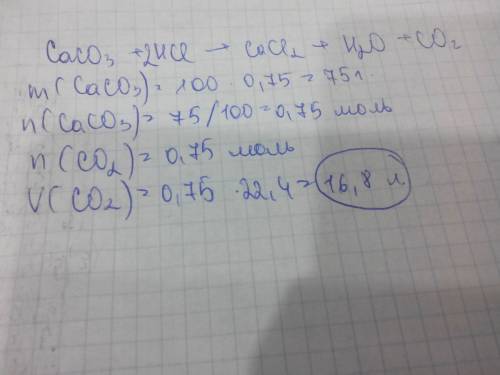 CaCO₃ + 2HCl → CaCl₂ + H₂O + CO₂
m(CaCO₃) = 100 · 0,75 = 75 г.
n(CaCO₃) = 75/100 = 0,75 моль
n(CO₂) = 0,75 моль
V(CO₂) = 0,75 · 22,4 = 16,8 л